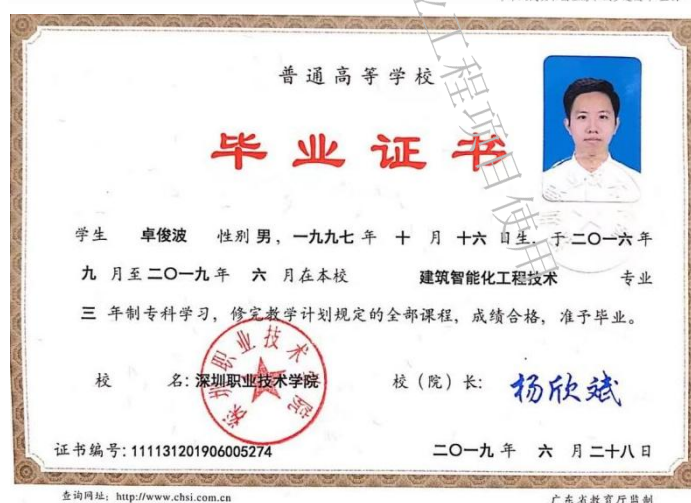 普通高等学校
毕业证书
学生 卓俊波 性别 男，一九九七 年 十 月 十六 日生，于 二〇一六 年
九 月至 二〇一九 年 六 月在本校 建筑智能化工程技术 专业
三 年制专科学习，修完教学计划规定的全部课程，成绩合格，准予毕业。
校 名：深圳职业技术学院 校（院）长：杨欣斌
证书编号：111131201906005274 二〇一九 年 六 月 二十八 日
查询网址：http://www.chsi.com.cn 广东省教育厅监制
工程项目使用
深圳职业技术学院